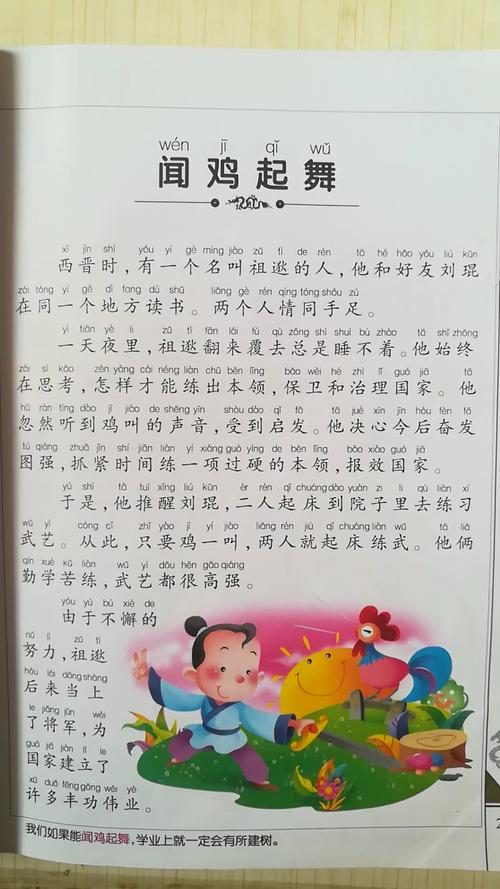 wén jī qǐ wǔ
闻鸡起舞
xī jìn shí yǒu yí gè míng jiào zǔ tì de rén tā hé hǎo yǒu liú kūn
西晋时,有一个名叫祖逖的人,他和好友刘琨
zài tóng yí gè dì fang dú shū liǎng gè rén qíng tóng shǒu zú
在同一个地方读书。两个人情同手足。
yì tiān yè li zǔ tì fān lái fù qù zǒng shì shuì bù zháo tā shǐ zhōng
一天夜里,祖逖翻来覆去总是睡不着。他始终
zài sī kǎo zěn yàng cái néng liàn chū běn lǐng bǎo wèi hé zhì lǐ guó jiā tā
在思考,怎样才能练出本领,保卫和治理国家。他
hū rán tīng dào jī jiào de shēng yīn shòu dào qǐ fā tā jué xīn jīn hòu fèn fā
忽然听到鸡叫的声音,受到启发。他决心今后奋发
tú qiáng zhuā jǐn shí jiān liàn yí xiàng guò yìng de běn lǐng bào xiào guó jiā
图强,抓紧时间练一项过硬的本领,报效国家。
yú shì tā tuī xǐng liú kūn èr rén qǐ chuáng dào yuàn zi li qù liàn xí
于是,他推醒刘琨,二人起床到院子里去练习
wǔ yì cóng cǐ zhǐ yào jī yí jiào liǎng rén jiù qǐ chuáng liàn wǔ tā liǎ
武艺。从此,只要鸡一叫,两人就起床练武。他俩
qín xué kǔ liàn wǔ yì dōu hěn gāo qiáng
勤学苦练,武艺都很高强。
yóu yú bú xiè de
由于不懈的
nǔ lì zǔ tì
努力,祖逖
hòu lái dāng shàng
后来当上
le jiāng jūn wèi
了将军,为
guó jiā jiàn lì le
国家建立了
xǔ duō fēng gōng wěi yè
许多丰功伟业。
我们如果能闻鸡起舞,学业上就一定会有所建树。